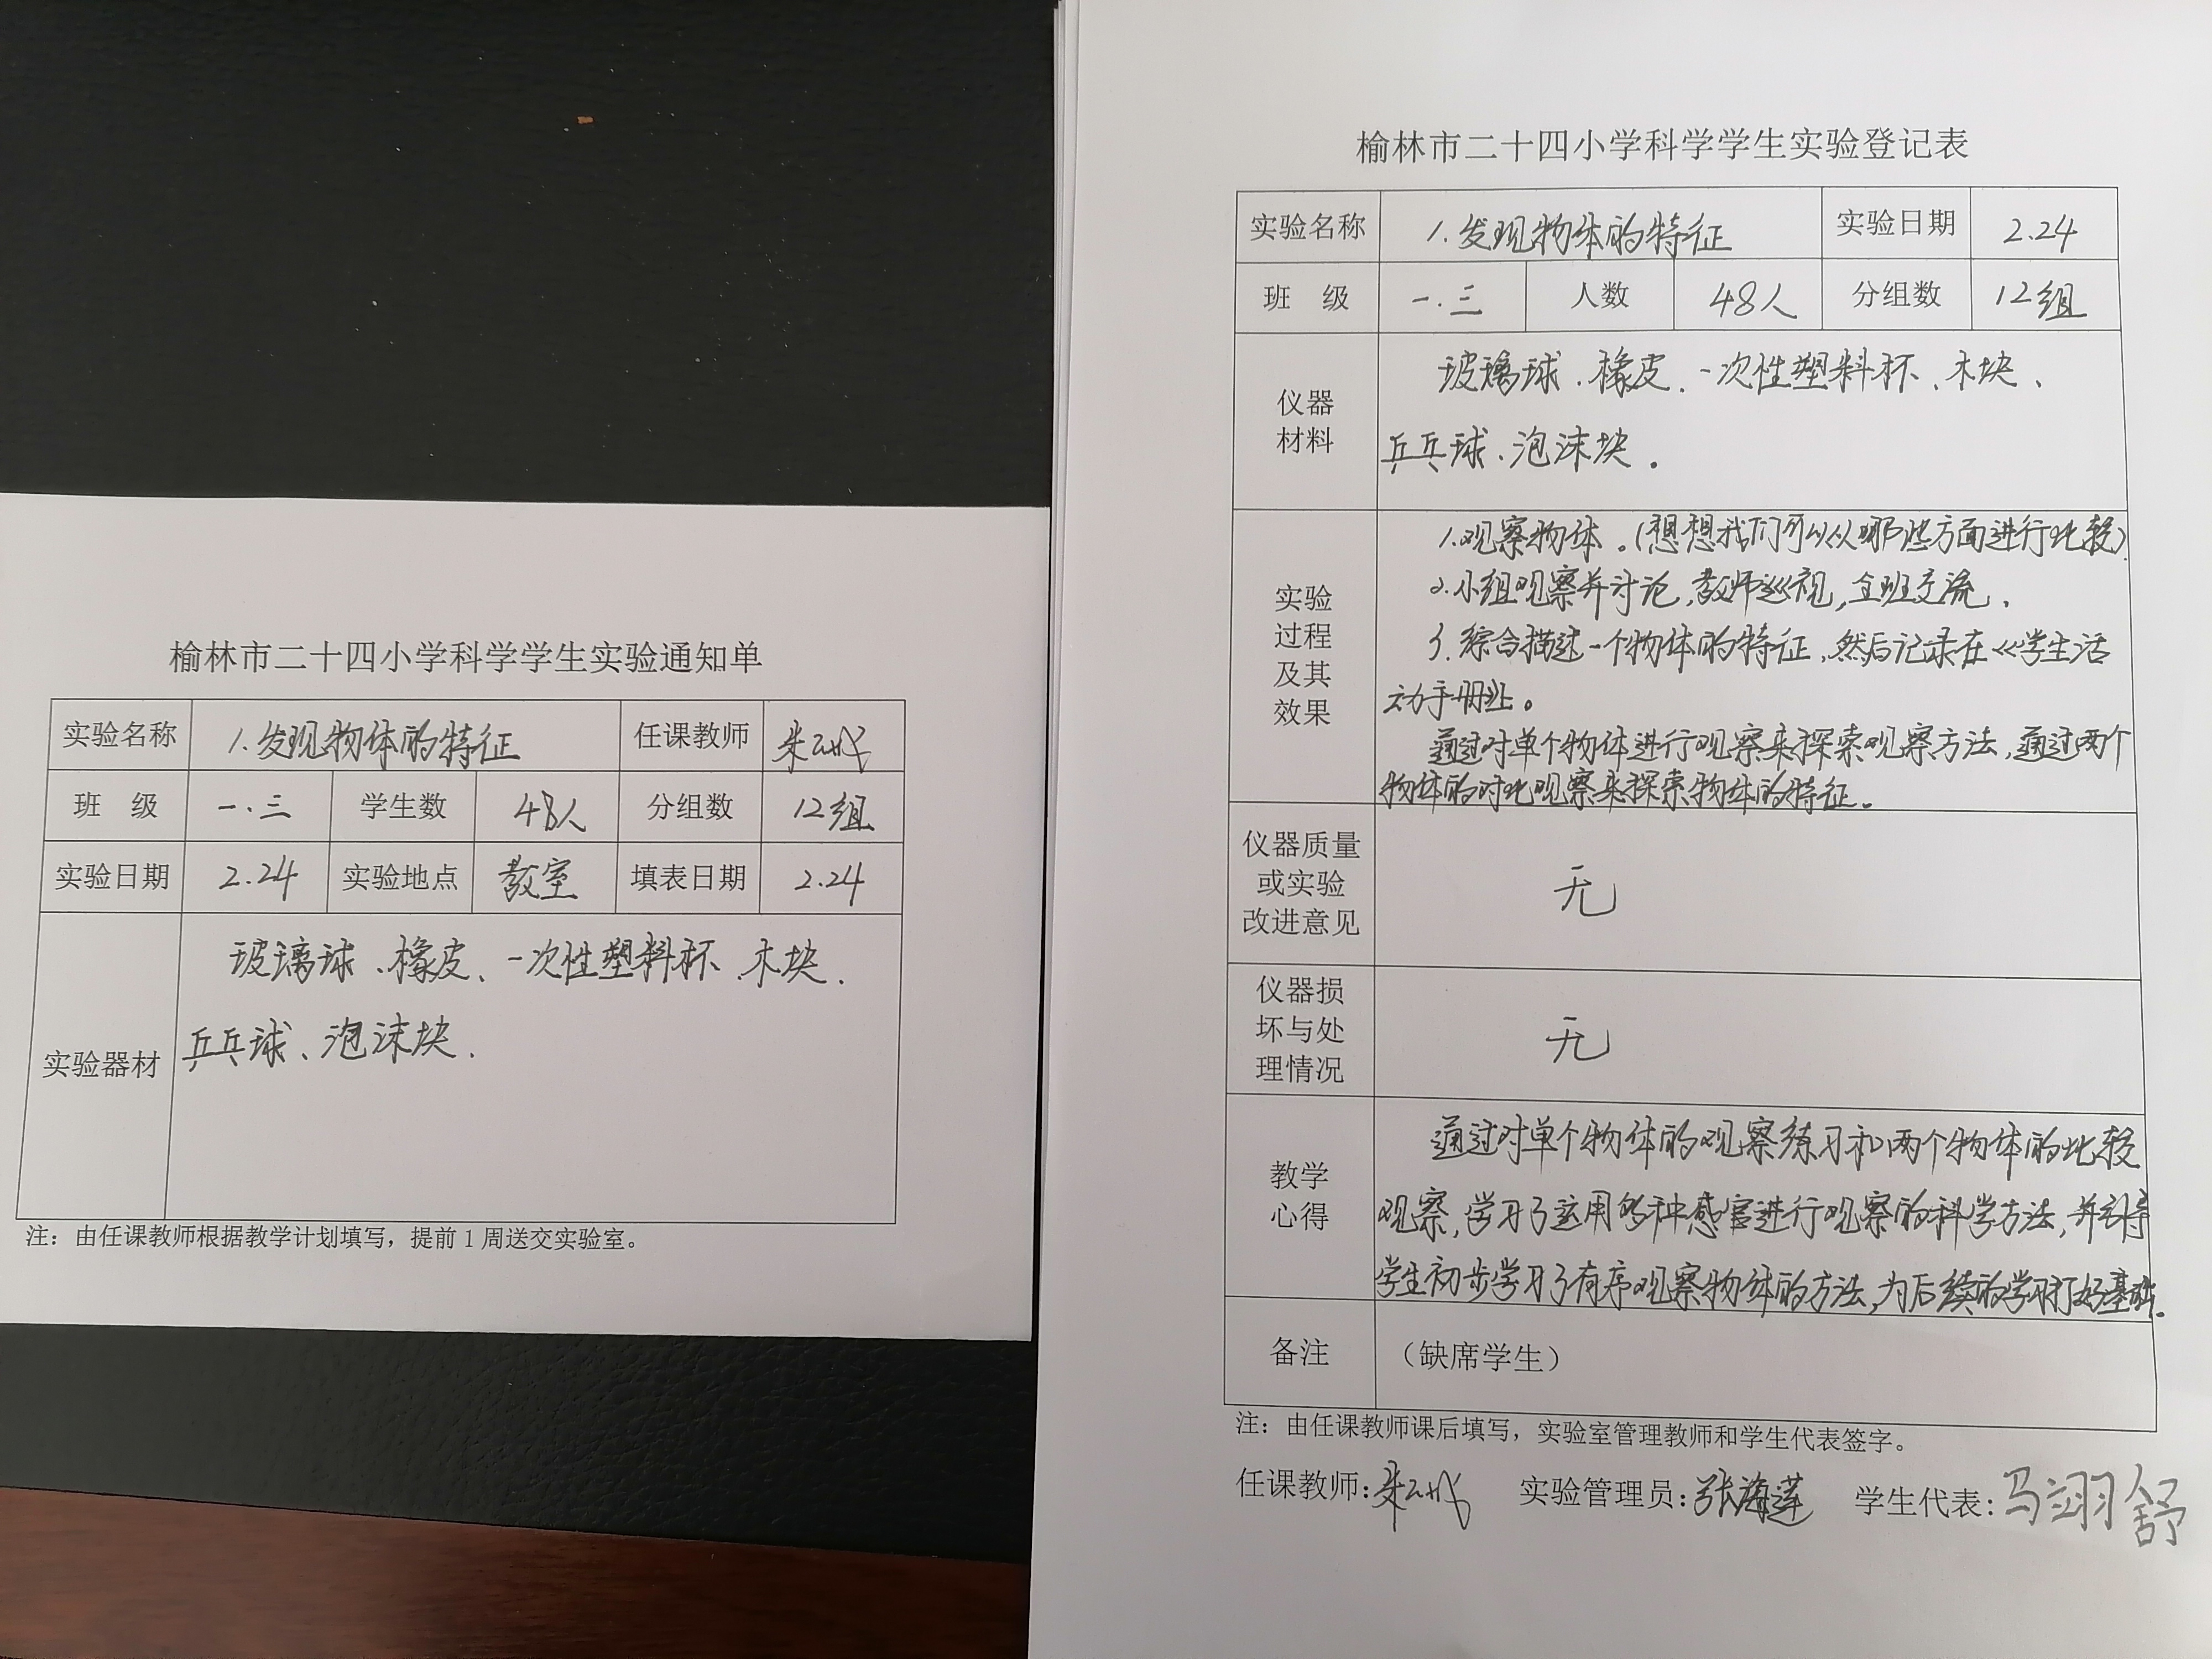 榆林市二十四小学科学学生实验通知单
实验名称 1.发现物体的特征 任课教师
班 级 一.三 学生数 48人 分组数 12组
实验日期 2.24 实验地点 教室 填表日期 2.24
实验器材 玻璃球、橡皮、一次性塑料杯、木块、
乒乓球、泡沫块.
注：由任课教师根据教学计划填写，提前1周送交实验室。
榆林市二十四小学科学学生实验登记表
实验名称 1.发现物体的特征 实验日期 2.24
班 级 一.三 人数 48人 分组数 12组
仪器
材料
玻璃球、橡皮、一次性塑料杯、木块、
乒乓球、泡沫块。
实验
过程
及其
效果
1.观察物体。(想想我们可以从哪些方面进行比较)
2.小组观察并讨论,教师巡视,全班交流.
3.综合描述一个物体的特征,然后记录在《学生活
动手册》上。
通过对单个物体进行观察来探索观察方法,通过两个
物体的对比观察来探索物体的特征。
仪器质量
或实验
改进意见
无
仪器损
坏与处
理情况
无
教学
心得
通过对单个物体的观察练习和两个物体的比较
观察,学习了运用多种感官进行观察的科学方法,并引导
学生初步学习了有序观察物体的方法,为后续的学习打好基础。
备注 （缺席学生）
注：由任课教师课后填写，实验室管理教师和学生代表签字。
任课教师: 实验管理员:张海莲 学生代表:马翊舒